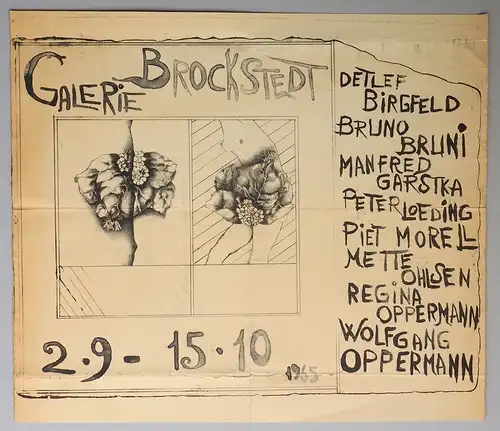 GALERIE BROCKSTEDT
2.9 - 15.10
1965
DETLEF
BIRGFELD
BRUNO
BRUNI
MANFRED
GARSTKA
PETER LOEDING
PIET MORELL
METTE
OHLSEN
REGINA
OPPERMANN
WOLFGANG
OPPERMANN